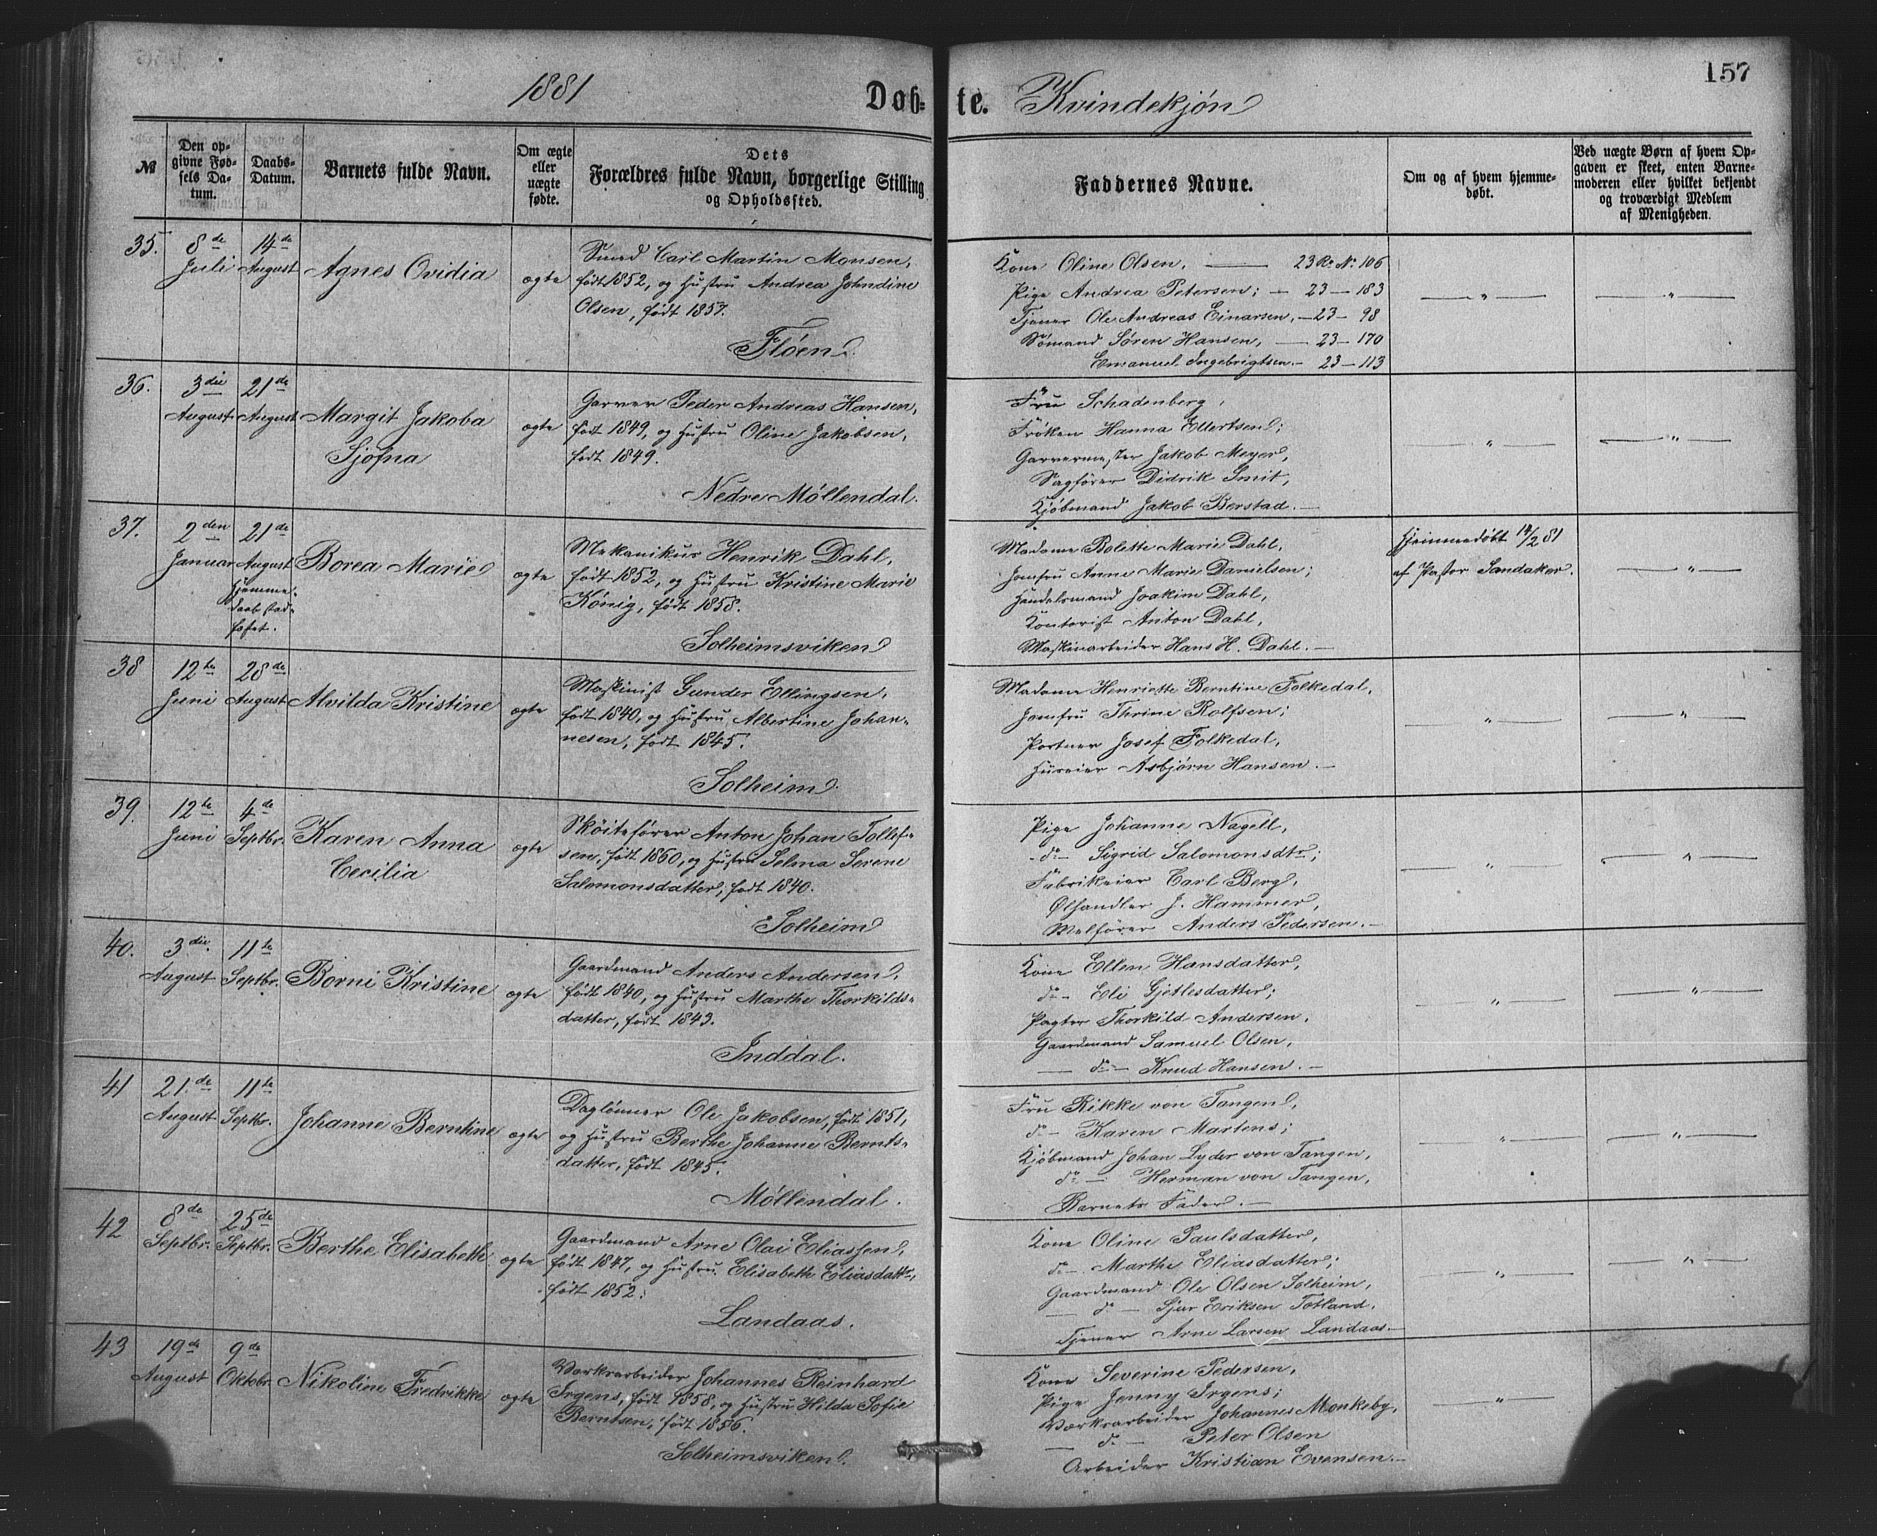 157
1881
Døb-te. Kvindekjøn
№
Den opgivne Fødsels Datum.
Daabs-Datum.
Barnets fulde Navn.
Om ægte eller uægte fødte.
Dets
Forældres fulde Navn, borgerlige Stilling
og Opholdssted.
Faddernes Navne.
Om og af hvem hjemmedøbt.
Ved uægte Børn af hvem Opgaven er skeet, enten Barnemoderen eller hvilket bekjendt og troværdigt Medlem af Menigheden.
35.
8de Juli
14de August
Agnes Ovidia
ægte
Smed Carl Martin Monsen,
født 1852, og Hustru Andrea Johndine
Olsen, født 1857.
Fløen.
Kone Oline Olsen, — 23 R. N. 106
Pige Andrea Petersen; — 23 — 183
Tjener Ole Andreas Einarsen, — 23 — 98
Sømand Søren Hansen, — 23 — 170
Emanuel Ingebrigtsen — 23 — 113
— " —
— " —
36.
3die August
21de August
Margit Jakoba
Sjøfna
ægte
Garver Peder Andreas Hansen,
født 1849, og Hustru Oline Jakobsen,
født 1849.
Nedre Møllendal.
Fru Schadenberg,
Frøken Hanna Ellertsen;
Garvermester Jakob Meyer,
Sagfører Didrik Smit,
Kjøbmand Jakob Berstad. —
— " —
— " —
37.
2den Januar
21de August
Hjemme-
daab stad-
fæstet.
Borea Marie
ægte
Mekanikus Henrik Dahl,
født 1852, og Hustru Kristine Marie
König, født 1858.
Solheimsviken
Madame Bolette Marie Dahl,
Jomfru Anne Marie Danielsen;
Handelsmand Joakim Dahl,
Kontorist Anton Dahl,
Maskinarbeider Hans H. Dahl. —
Hjemmedøbt /2 81
af Pastor Sandaker.
— " —
38
12te Juni
28de August
Alvilda Kristine
ægte
Maskinist Gunder Ellingsen,
født 1840, og Hustru Albertine Johan-
nesen, født 1845.
Solheim.
Madame Henriette Berntine Folkedal,
Jomfru Thrine Rolfsen;
Portner Josef Folkedal,
Huseier Asbjørn Hansen. —
— " —
— " —
39.
12te Juni
4de Septbr.
Karen Anna
Cecilia
ægte
Skøitefører Anton Johan Tollef-
sen, født 1860, og Hustru Selma Serene
Salomonsdatter, født 1840.
Solheim
Pige Johanne Nagell,
do — Sigrid Salomonsdtr;
Fabrikeier Carl Berg,
Ølhandler J. Hammer,
Anders Pedersen. —
— " —
— " —
40.
3die August
11te Septbr.
Borni Kristine
ægte
Gaardmand Anders Andersen,
født 1840, og Hustru Marthe Thorkilds-
datter, født 1843.
Inddal.
Kone Ellen Hansdatter,
do — Eli Gjetlesdatter;
Pagter Thorkild Andersen,
Gaardmand Samuel Olsen,
— do — Knud Hansen. —
— " —
— " —
41
21de August
11te Septbr.
Johanne Berntine
ægte
Daglønner Ole Jakobsen, født 1851,
og Hustru Berthe Johanne Bernts-
datter, født 1845.
Møllendal.
Fru Rikke von Tangen,
do — Karen Martens;
Kjøbmand Johan Lyder von Tangen,
do — Herman von Tangen,
Barnets Fader. —
— " —
— " —
42
8de Septbr.
25de Septbr.
Berthe Elisabeth
ægte
Gaardmand Arne Olai Eliassen,
født 1847, og Hustru Elisabeth Eliasdattr,
født 1852.
Landaas.
Kone Oline Paulsdatter,
do — Marthe Eliasdatter;
Gaardmand Ole Olsen Solheim,
— do — Sjur Eriksen Totland,
Tjener Arne Larsen Landaas. —
— " —
— " —
43
19de August
9de Oktobr.
Nikoline Fredrikke
ægte
Værksarbeider Johannes Reinhard
Irgens, født 1858, og Hustru Hilda Sofie
Berntsen, født 1856.
Solheimsviken.
Kone Severine Pedersen,
Pige Jenny Irgens;
Værksarbeider Johannes Monkeby,
— do — Peter Olsen
Arbeider Kristian Evensen. —
— " —